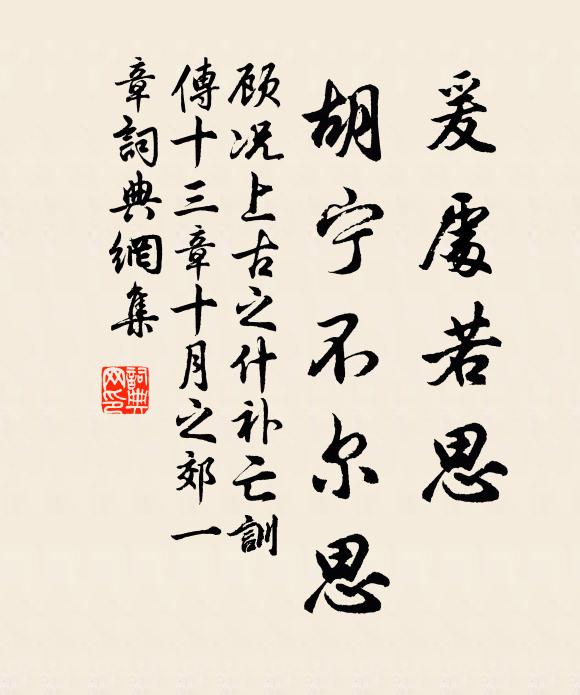 爰處若思
胡宁不尔思
顾况上古之什补亡訓
傳十三章十月之郊一
章詞典網集
詞典
网印